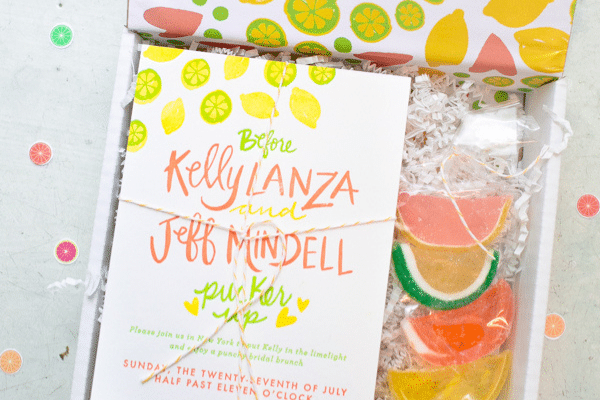 Before
Kelly LANZA
and
Jeff MINDELL
pucker
up
Please join us in New York to put Kelly in the limelight
and enjoy a punchy bridal brunch
SUNDAY, THE TWENTY-SEVENTH OF JULY
HALF PAST ELEVEN O'CLOCK